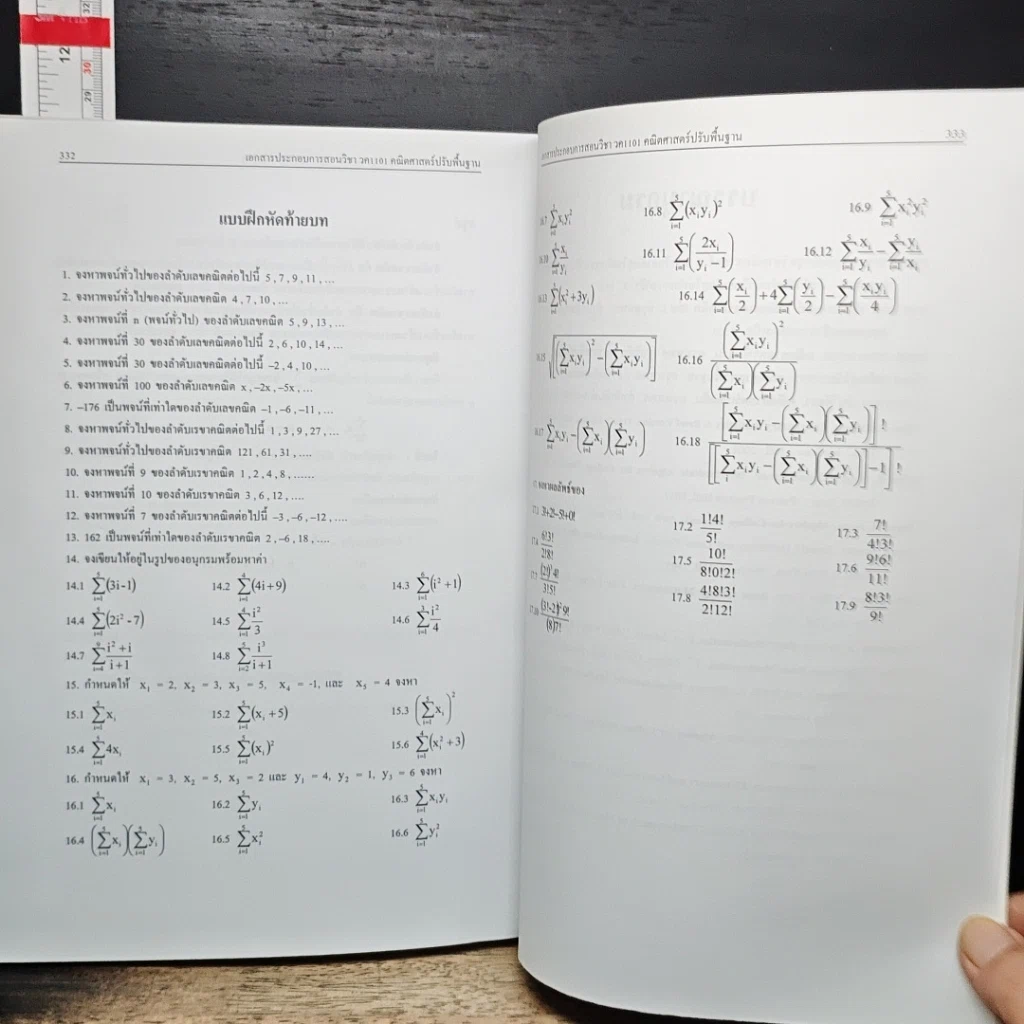 332 เอกสารประกอบการสอนวิชา วค1101 คณิตศาสตร์ปรับพื้นฐาน
แบบฝึกหัดท้ายบท
1. จงหาพจน์ทั่วไปของลำดับเลขคณิตต่อไปนี้ 5 , 7 , 9 , 11 , …
2. จงหาพจน์ทั่วไปของลำดับเลขคณิต 4 , 7 , 10 , …
3. จงหาพจน์ที่ n (พจน์ทั่วไป) ของลำดับเลขคณิต 5 , 9 , 13 , …
4. จงหาพจน์ที่ 30 ของลำดับเลขคณิตต่อไปนี้ 2 , 6 , 10 , 14 , …
5. จงหาพจน์ที่ 30 ของลำดับเลขคณิตต่อไปนี้ −2 , 4 , 10 , …
6. จงหาพจน์ที่ 100 ของลำดับเลขคณิต x , −2x , −5x , …
7. −176 เป็นพจน์ที่เท่าใดของลำดับเลขคณิต −1 , −6 , −11 , …
8. จงหาพจน์ทั่วไปของลำดับเรขาคณิตต่อไปนี้ 1 , 3 , 9 , 27 , …
9. จงหาพจน์ทั่วไปของลำดับเรขาคณิต 121 , 61 , 31 , ….
10. จงหาพจน์ที่ 9 ของลำดับเรขาคณิต 1 , 2 , 4 , 8 , ……
11. จงหาพจน์ที่ 10 ของลำดับเรขาคณิต 3 , 6 , 12 , ….
12. จงหาพจน์ที่ 7 ของลำดับเรขาคณิตต่อไปนี้ −3 , −6 , −12 , ….
13. 162 เป็นพจน์ที่เท่าใดของลำดับเรขาคณิต 2 , −6 , 18 , ….
14. จงเขียนให้อยู่ในรูปของอนุกรมพร้อมหาค่า
14.1 ∑(3i-1) 14.2 ∑(4i+9) 14.3 ∑(i²+1)
14.4 ∑(2i²-7) 14.5 ∑i²/3 14.6 ∑i²/4
14.7 ∑(i²+i)/(i+1) 14.8 ∑i³/(i+1)
15. กำหนดให้ x₁ = 2, x₂ = 3, x₃ = 5, x₄ = -1, และ x₅ = 4 จงหา
15.1 ∑xᵢ 15.2 ∑(xᵢ+5) 15.3 (∑xᵢ)²
15.4 ∑4xᵢ 15.5 ∑(xᵢ)² 15.6 ∑(xᵢ²+3)
16. กำหนดให้ x₁ = 3, x₂ = 5, x₃ = 2 และ y₁ = 4, y₂ = 1, y₃ = 6 จงหา
16.1 ∑xᵢ 16.2 ∑yᵢ 16.3 ∑xᵢyᵢ
16.4 (∑xᵢ)(∑yᵢ) 16.5 ∑xᵢ² 16.6 ∑yᵢ²
เอกสารประกอบการสอนวิชา วค1101 คณิตศาสตร์ปรับพื้นฐาน 333
16.7 ∑xᵢyᵢ² 16.8 ∑(xᵢyᵢ)² 16.9 ∑xᵢ²yᵢ²
16.10 ∑xᵢ/yᵢ 16.11 ∑(2xᵢ/(yᵢ−1)) 16.12 ∑xᵢ/yᵢ − ∑yᵢ/xᵢ
16.13 ∑(xᵢ²+3yᵢ) 16.14 ∑(xᵢ/2)+4∑(yᵢ/2)−∑(xᵢyᵢ/4)
16.15 √[(∑xᵢyᵢ)²−(∑xᵢyᵢ)] 16.16 (∑xᵢyᵢ)²/(∑xᵢ)(∑yᵢ)
16.17 ∑xᵢyᵢ−(∑xᵢ)(∑yᵢ) 16.18 [∑xᵢyᵢ−(∑xᵢ)(∑yᵢ)]!/[[∑xᵢyᵢ−(∑xᵢ)(∑yᵢ)]−1]!
17. จงหาผลลัพธ์ของ
17.1 3!+2!−5!+0! 17.2 1!4!/5! 17.3 7!/4!3!
17.4 6!3!/2!8! 17.5 10!/8!0!2! 17.6 9!6!/11!
17.7 (2!)²4!/3!5! 17.8 4!8!3!/2!12! 17.9 8!3!/9!
17.10 (3!-2!)²9!/(8)7!
12
30
29